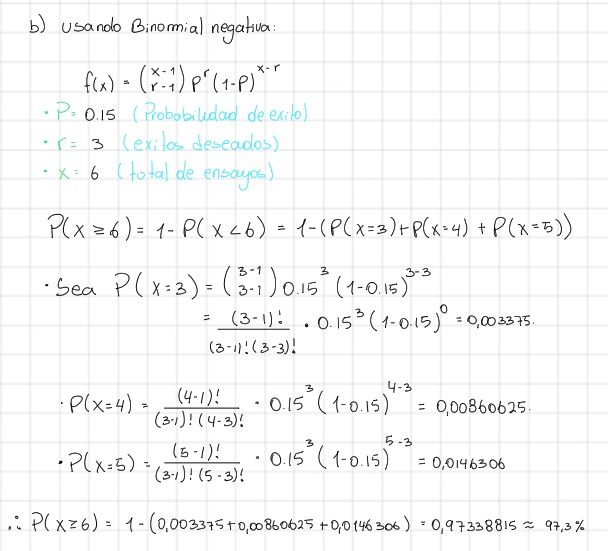 b) Usando Binomial negativa:
f(x) = (x-1 r-1) p^r (1-P)^x-r
• P= 0.15 (Probabilidad de exito)
• r= 3 (exitos deseados)
• x= 6 (total de ensayos)
P(x≥6) = 1- P(x<6) = 1-(P(x=3)+P(x=4) + P(x=5))
• Sea P(x=3) = (3-1 3-1) 0.15^3 (1-0.15)^3-3
= (3-1)! / (3-1)!(3-3)! • 0.15^3 (1-0.15)^0 = 0,003375.
• P(x=4) = (4-1)! / (3-1)! (4-3)! • 0.15^3 (1-0.15)^4-3 = 0,00860625.
• P(x=5) = (5-1)! / (3-1)! (5-3)! • 0.15^3 (1-0.15)^5-3 = 0,0146306
∴ P(x≥6) = 1-(0,003375+0,00860625+0,0146306) = 0,97338815 ≈ 97,3%